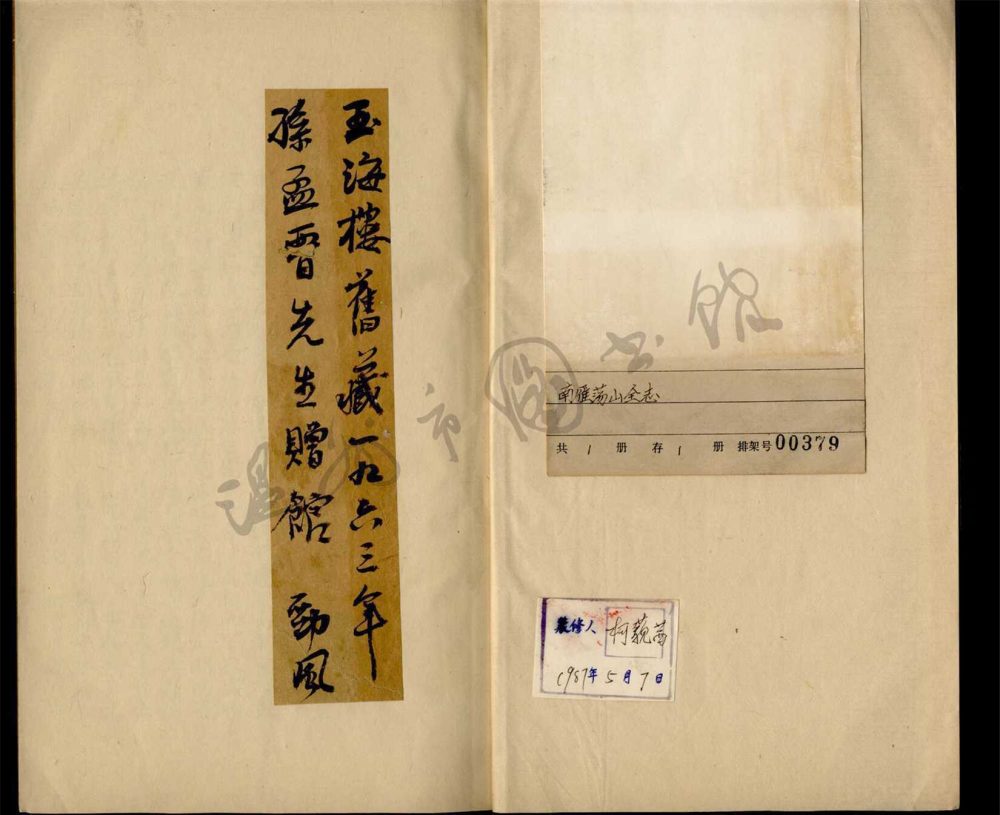 玉海樓舊藏一九六三年
孫孟晉先生贈館 勁風
南雁荡山全志
共 1 册 存 1 册 排架号 00379
裝修人 柯藐茜
1987年5月7日
温州市图书馆